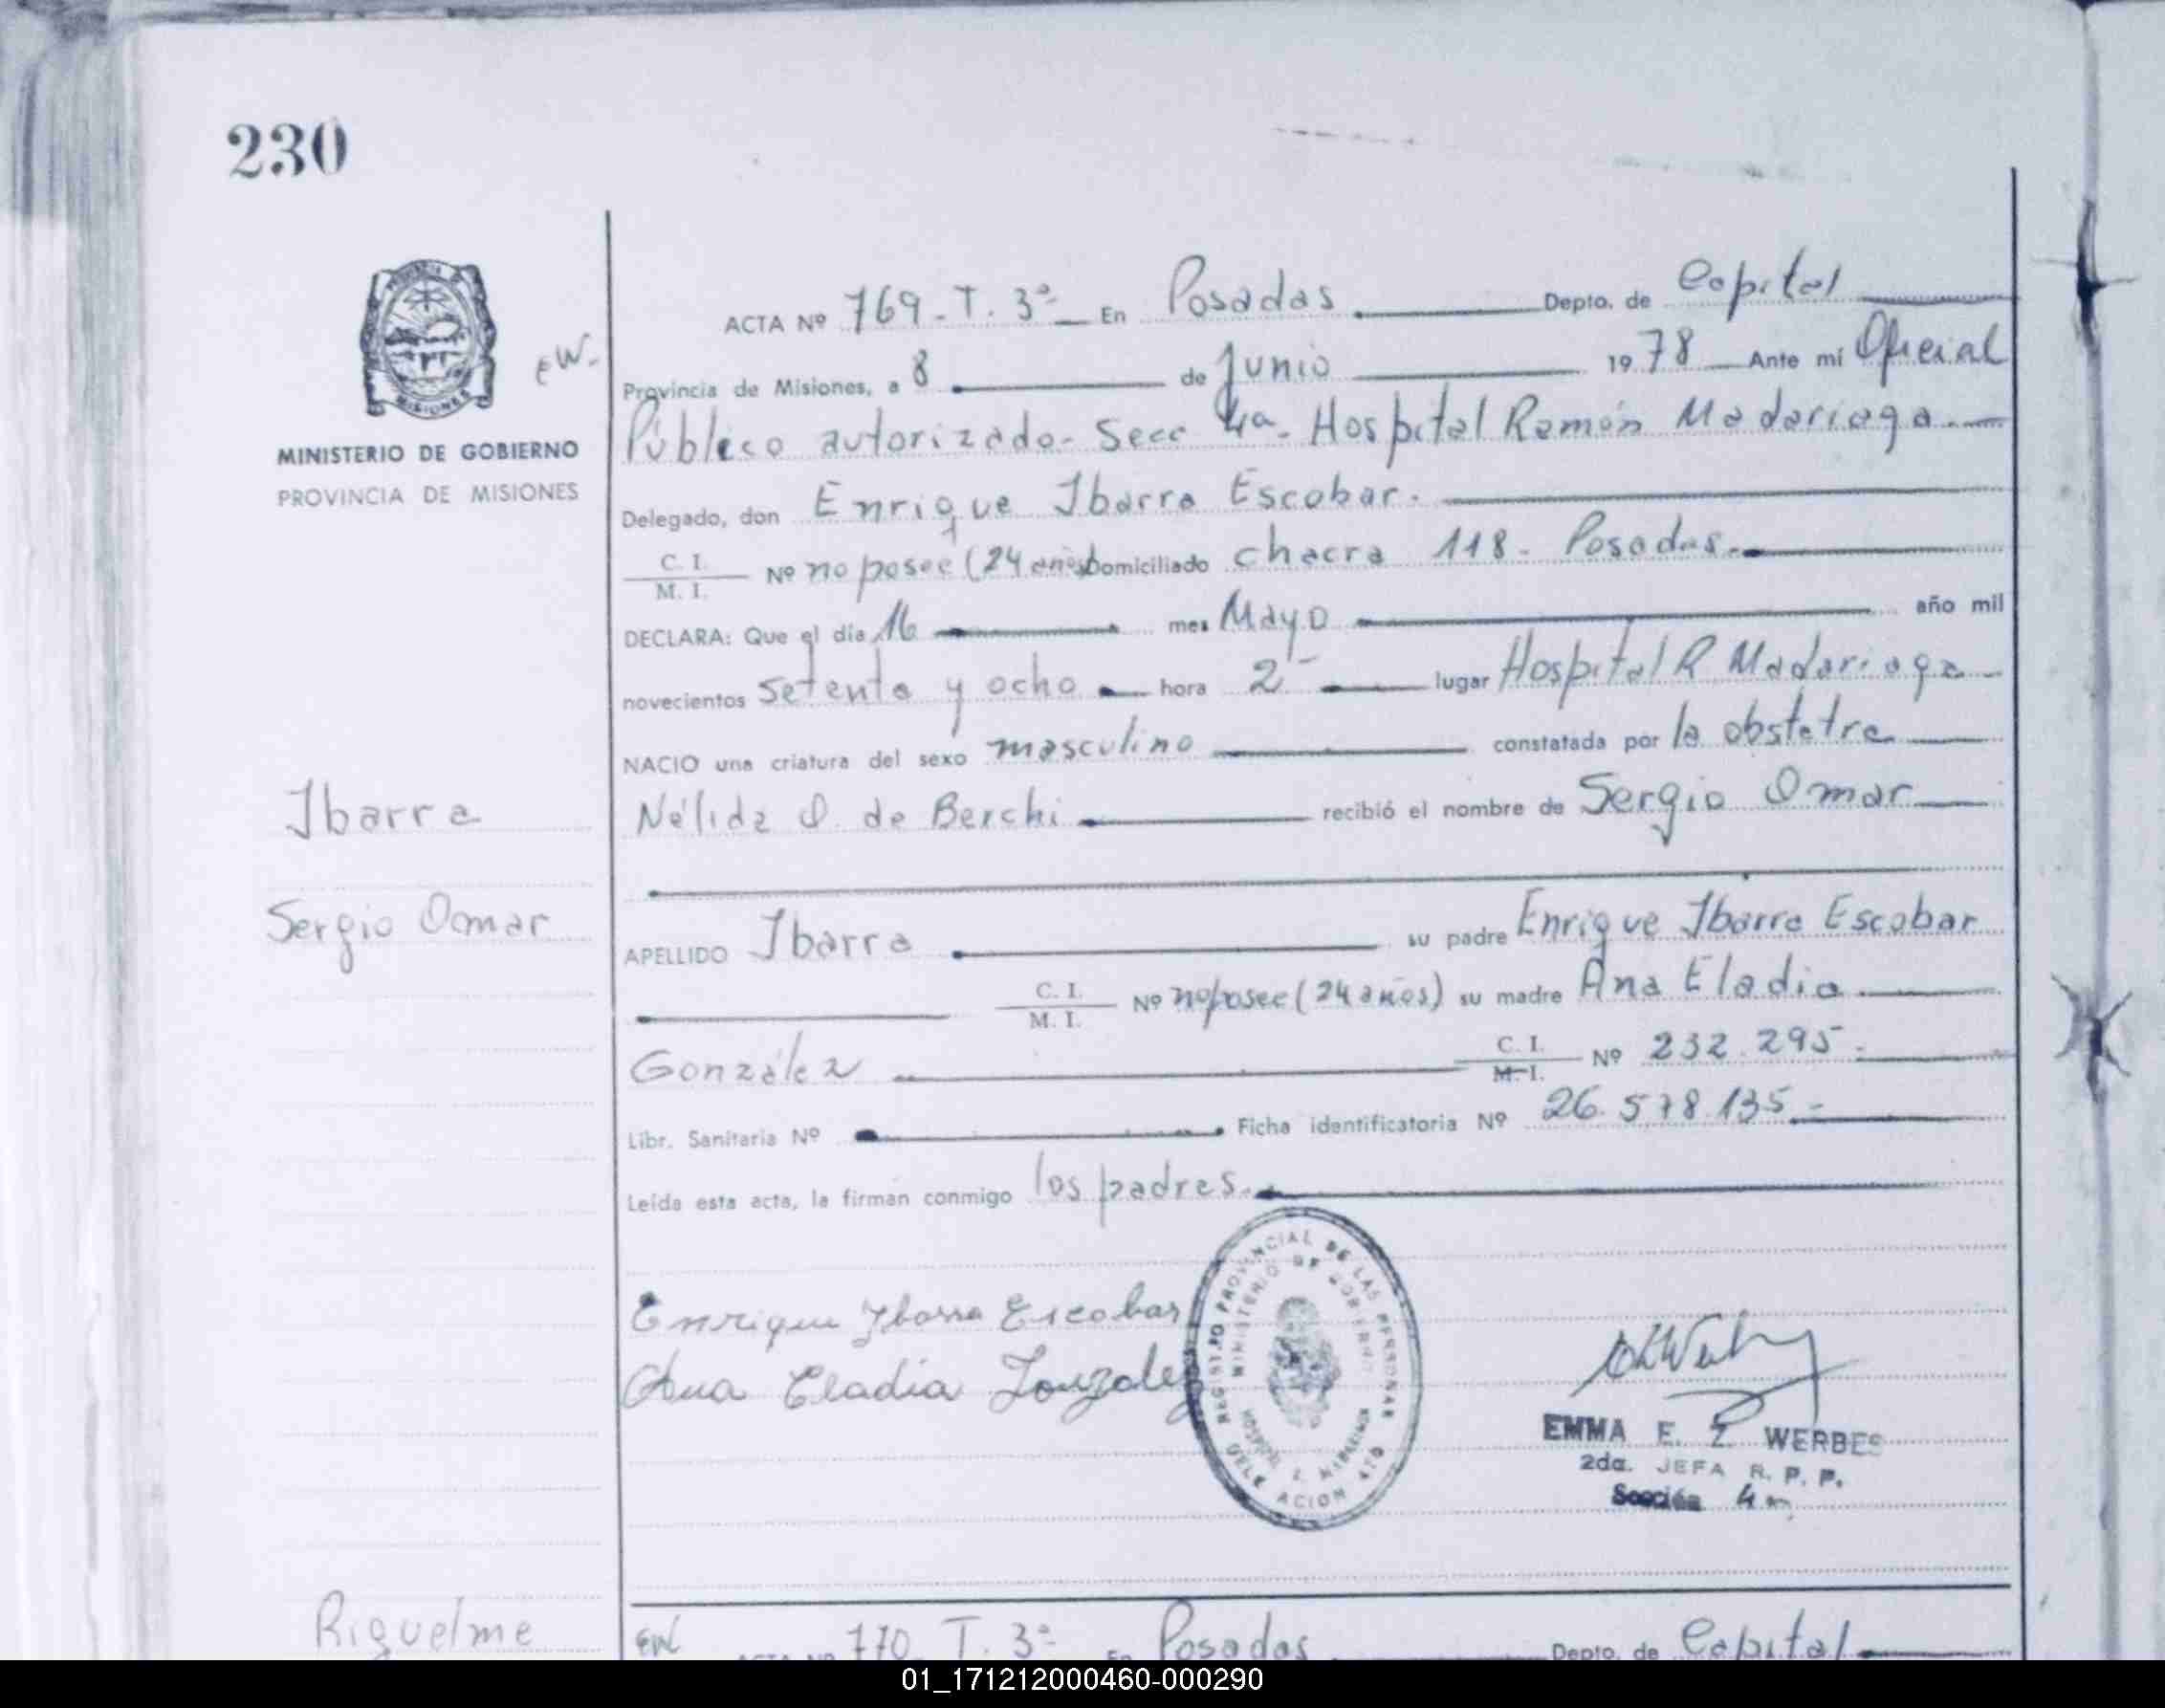 230
ACTA Nº 769 - T. 3ª En Posadas Depto. de Capital
EW.
Provincia de Misiones, a 8 de Junio 1978 Ante mí Oficial
Público autorizado - Secc 4ª - Hospital Ramón Madariaga
MINISTERIO DE GOBIERNO
PROVINCIA DE MISIONES
Delegado, don Enrique Ibarra Escobar.
C. I. / M. I. Nº no posee (24 años) Domiciliado chacra 118 - Posadas.
DECLARA: Que el día 16 mes Mayo año mil
novecientos setenta y ocho hora 2 lugar Hospital R Madariaga
NACIO una criatura del sexo masculino constatada por la obstetra
Ibarra
Nélida O. de Berchi recibió el nombre de Sergio Omar
Sergio Omar
APELLIDO Ibarra su padre Enrique Ibarra Escobar
C. I. / M. I. Nº no posee (24 años) su madre Ana Eladia
González C. I. / M. I. Nº 232.295.-
Libr. Sanitaria Nº Ficha identificatoria Nº 26.578.135.-
Leída esta acta, la firman conmigo los padres.
Enrique Ibarra Escobar
Ana Eladia Gonzalez
REGISTRO PROVINCIAL DE LAS PERSONAS
MINISTERIO DE GOBIERNO
EMMA E. Z. WERBES
2da. JEFA R. P. P.
Sección 4a
Riquelme
EW 770 T. 3ª En Posadas Depto. de Capital
01_171212000460-000290